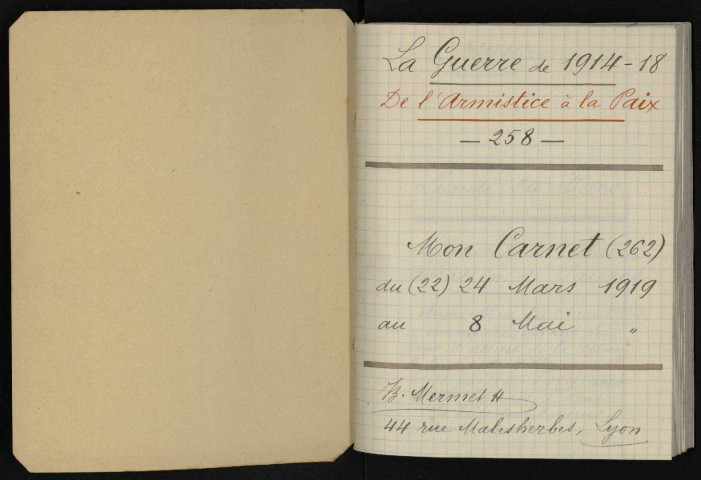 La Guerre de 1914-18
De l'Armistice à la Paix
— 258 —
Mon Carnet (262)
du (22) 24 Mars 1919
au 8 Mai "
B. Mermet
44 rue Malesherbes, Lyon